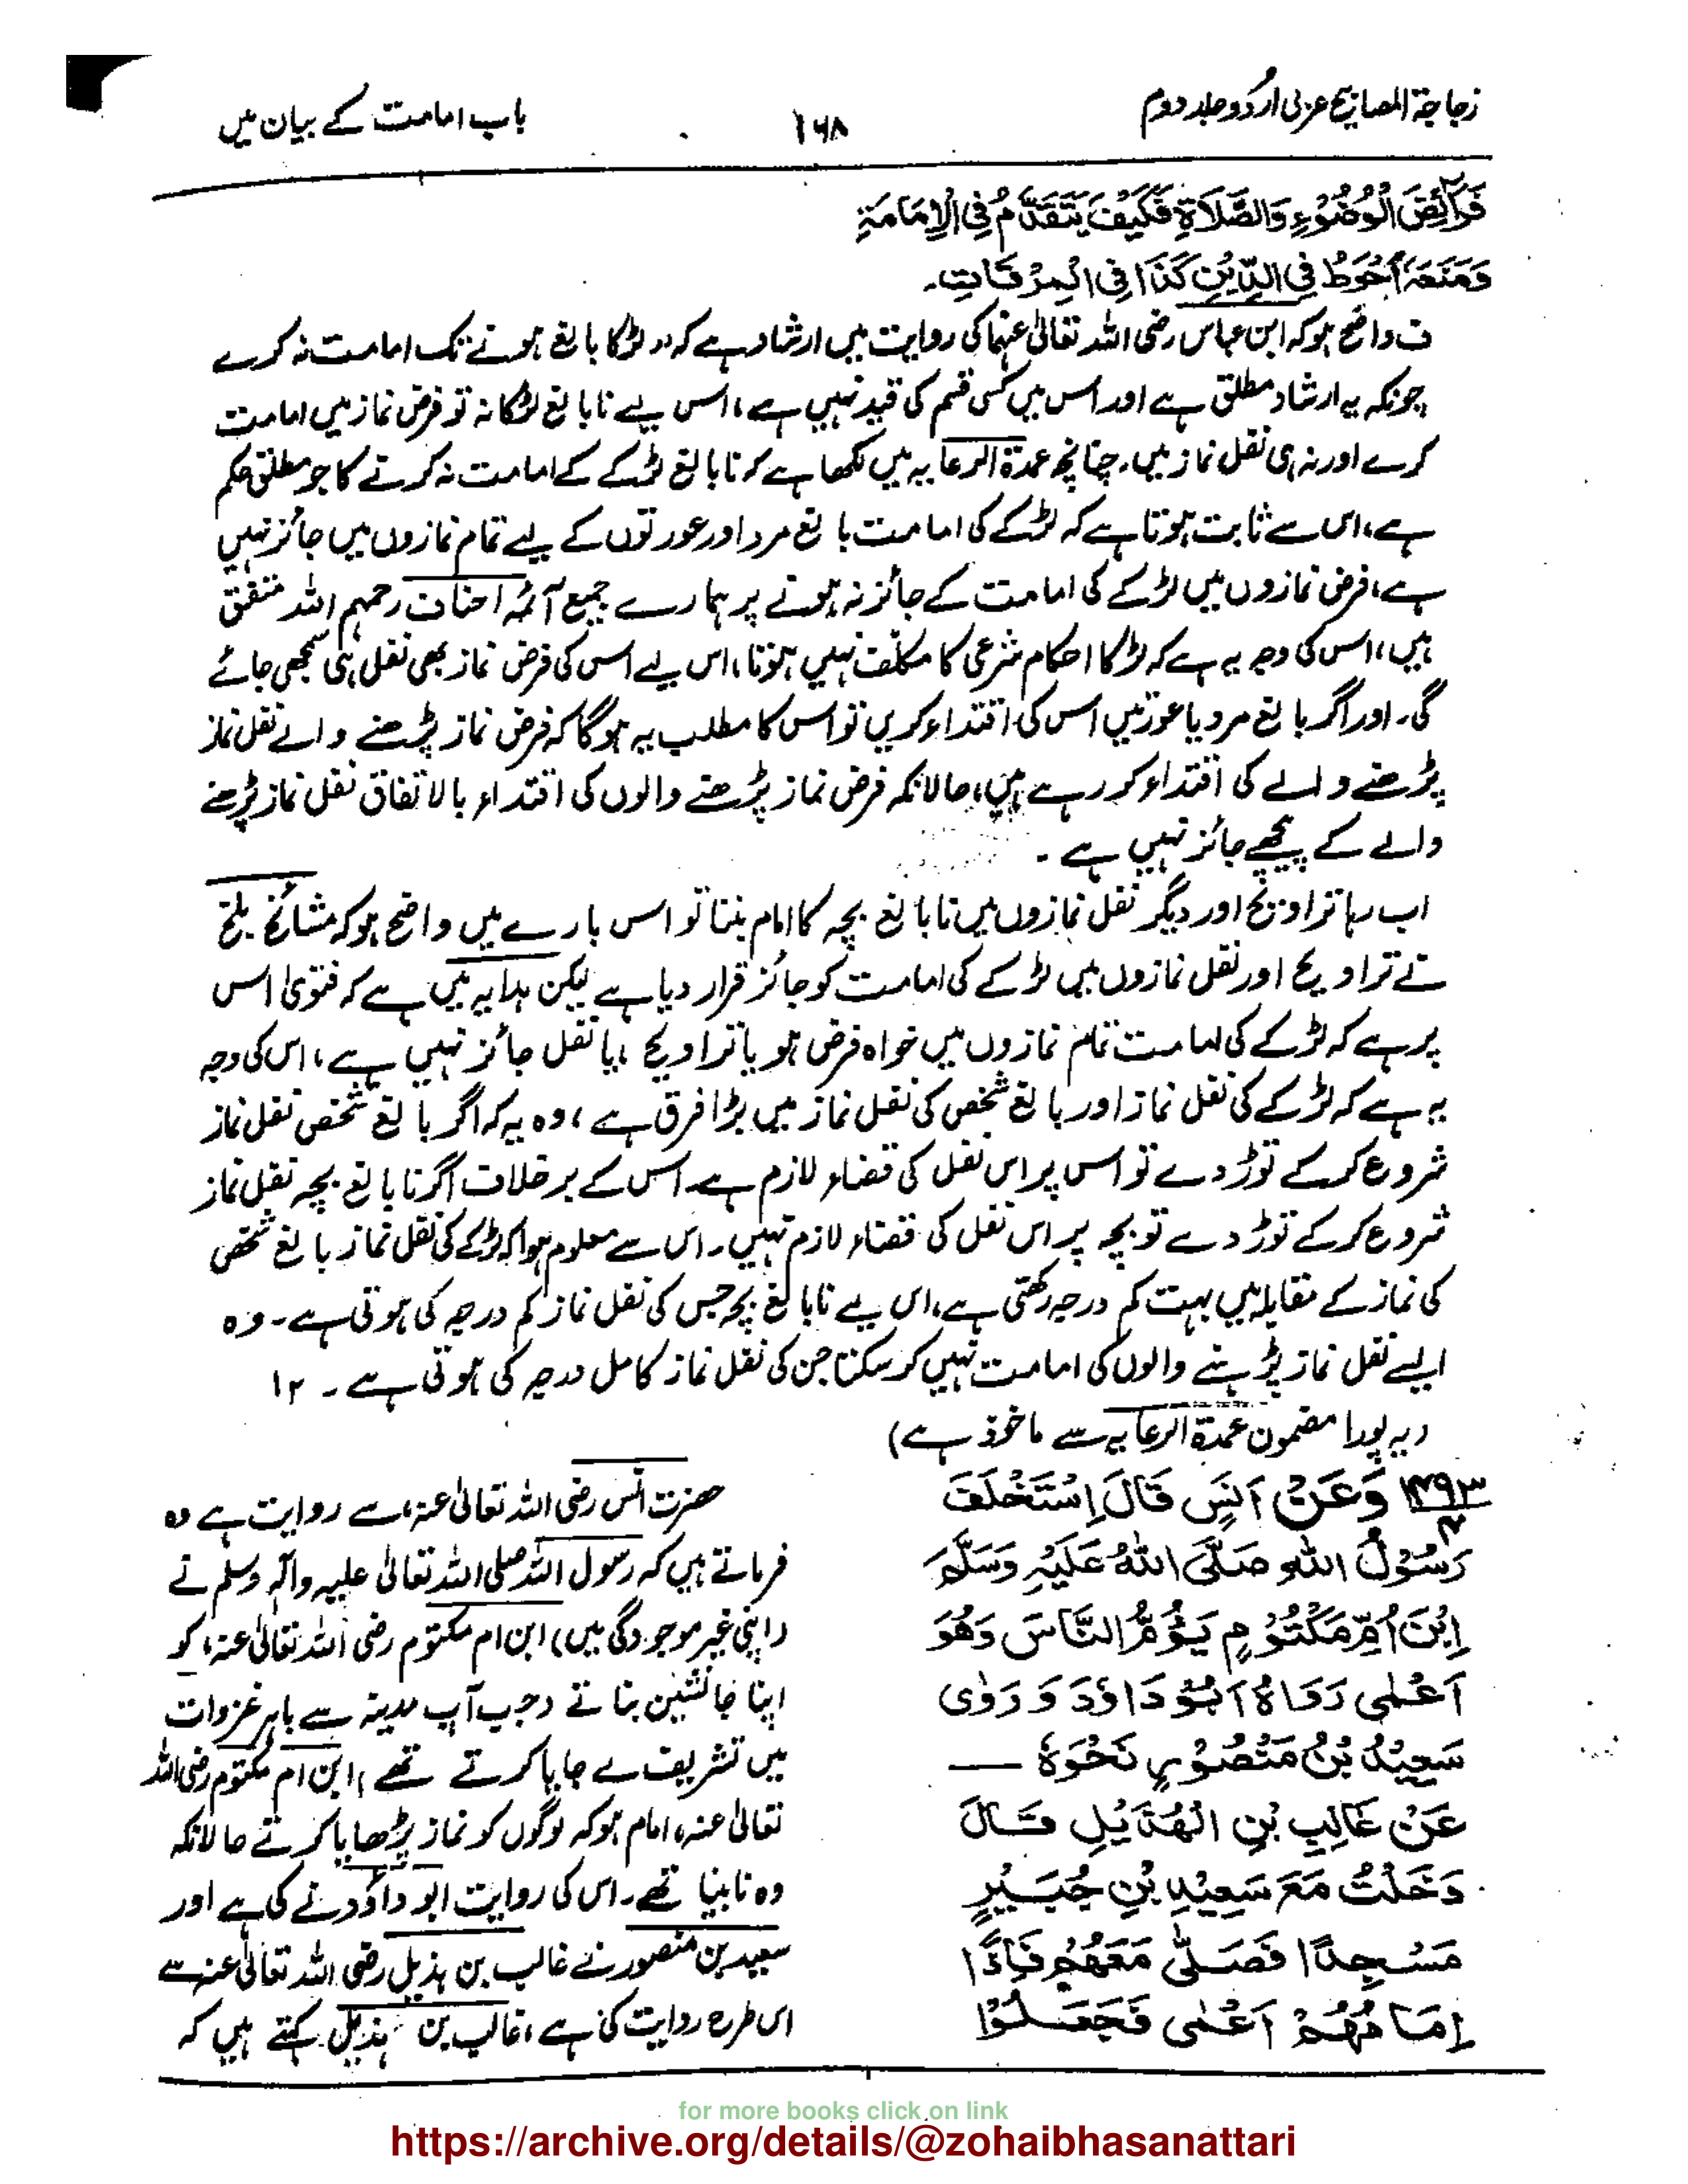 زجاجۃ المصابیح عربی اردو جلد دوم
۱۶۸
باب امامت کے بیان میں
فَرَائِضَ الْوُضُوْءِ وَالصَّلَاۃِ فَکَیْفَ یَتَقَدَّمُ فِی الْاِمَامَۃِ
وَمَنَعَہٗ اَحْوَطُ فِی الدِّیْنِ کَذَا فِی الْمِرْقَاتِ۔
ف واضح ہو کہ ابن عباس رضی اللہ تعالیٰ عنہما کی روایت میں ارشاد ہے کہ ،، لڑکا بالغ ہونے تک امامت نہ کرے
چونکہ یہ ارشاد مطلق ہے اور اس میں کسی قسم کی قید نہیں ہے، اس لیے نابالغ لڑکا نہ تو فرض نماز میں امامت
کرے اور نہ ہی نفل نماز میں۔ چنانچہ عمدۃ الرعایہ میں لکھا ہے کہ نابالغ لڑکے کے امامت نہ کرنے کا جو مطلق حکم
ہے، اس سے ثابت ہوتا ہے کہ لڑکے کی امامت بالغ مرد اور عورتوں کے لیے تمام نمازوں میں جائز نہیں
ہے، فرض نمازوں میں لڑکے کی امامت کے جائز نہ ہونے پر ہمارے جمیع آئمہ احناف رحمہم اللہ متفق
ہیں، اس کی وجہ یہ ہے کہ لڑکا احکام شرعی کا مکلّف نہیں ہوتا، اس لیے اس کی فرض نماز بھی نفل ہی سمجھی جائے
گی۔ اور اگر بالغ مرد یا عورتیں اس کی اقتداء کریں تو اس کا مطلب یہ ہوگا کہ فرض نماز پڑھنے والے نفل نماز
پڑھنے والے کی اقتداء کر رہے ہیں، حالانکہ فرض نماز پڑھنے والوں کی اقتداء بالاتفاق نفل نماز پڑھنے
والے کے پیچھے جائز نہیں ہے۔
اب رہا تراویح اور دیگر نفل نمازوں میں نابالغ بچہ کا امام بننا تو اس بارے میں واضح ہو کہ مشائخ بلخ
نے تراویح اور نفل نمازوں میں لڑکے کی امامت کو جائز قرار دیا ہے لیکن ہدایہ میں ہے کہ فتویٰ اس
پر ہے کہ لڑکے کی امامت تمام نمازوں میں خواہ فرض ہو یا تراویح، یا نفل جائز نہیں ہے، اس کی وجہ
یہ ہے کہ لڑکے کی نفل نماز اور بالغ شخص کی نفل نماز میں بڑا فرق ہے، وہ یہ کہ اگر بالغ شخص نفل نماز
شروع کر کے توڑ دے تو اس پر اس نفل کی قضاء لازم ہے۔ اس کے برخلاف اگر نابالغ بچہ نفل نماز
شروع کر کے توڑ دے تو بچہ پر اس نفل کی قضاء لازم نہیں۔ اس سے معلوم ہوا کہ لڑکے کی نفل نماز بالغ شخص
کی نماز کے مقابلہ میں بہت کم درجہ رکھتی ہے، اس لیے نابالغ بچہ جس کی نفل نماز کم درجہ کی ہوتی ہے۔ وہ
ایسے نفل نماز پڑہنے والوں کی امامت نہیں کر سکتا جن کی نفل نماز کامل درجہ کی ہوتی ہے۔ ۱۲
(یہ پورا مضمون عمدۃ الرعایہ سے ماخوذ ہے)
۱۴۹۳ وَعَنْ اَنَسٍ قَالَ اِسْتَخْلَفَ
رَسُوْلُ اللہِ صَلَّی اللہُ عَلَیْہِ وَسَلَّمَ
اِبْنَ اُمِّ مَکْتُوْمٍ یَؤُمُّ النَّاسَ وَھُوَ
اَعْمٰی رَوَاہُ اَبُوْ دَاوٗدَ وَ رَوٰی
سَعِیْدُ بْنُ مَنْصُوْرٍ نَحْوَہٗ ــــ
عَنْ غَالِبِ بْنِ الْھُذَیْلِ قَالَ
دَخَلْتُ مَعَ سَعِیْدِ بْنِ جُبَیْرٍ
مَسْجِدًا فَصَلّٰی مَعَھُمْ فَاِذًا
اِمَامُھُمْ اَعْمٰی فَجَعَلُوْا
حضرت انس رضی اللہ تعالیٰ عنہ، سے روایت ہے وہ
فرماتے ہیں کہ رسول اللہ صلی اللہ تعالیٰ علیہ وآلہ وسلم نے
(اپنی غیر موجودگی میں) ابن ام مکتوم رضی اللہ تعالیٰ عنہ، کو
اپنا جانشین بناتے (جب آپ مدینہ سے باہر غزوات
میں تشریف لے جایا کرتے تھے) ابن ام مکتوم رضی اللہ
تعالیٰ عنہ، امام ہو کر لوگوں کو نماز پڑھایا کرتے حالانکہ
وہ نابینا تھے۔ اس کی روایت ابو داؤد نے کی ہے اور
سعید بن منصور نے غالب بن ہذیل رضی اللہ تعالیٰ عنہ سے
اس طرح روایت کی ہے، غالب بن ہذیل کہتے ہیں کہ
for more books click on link
https://archive.org/details/@zohaibhasanattari